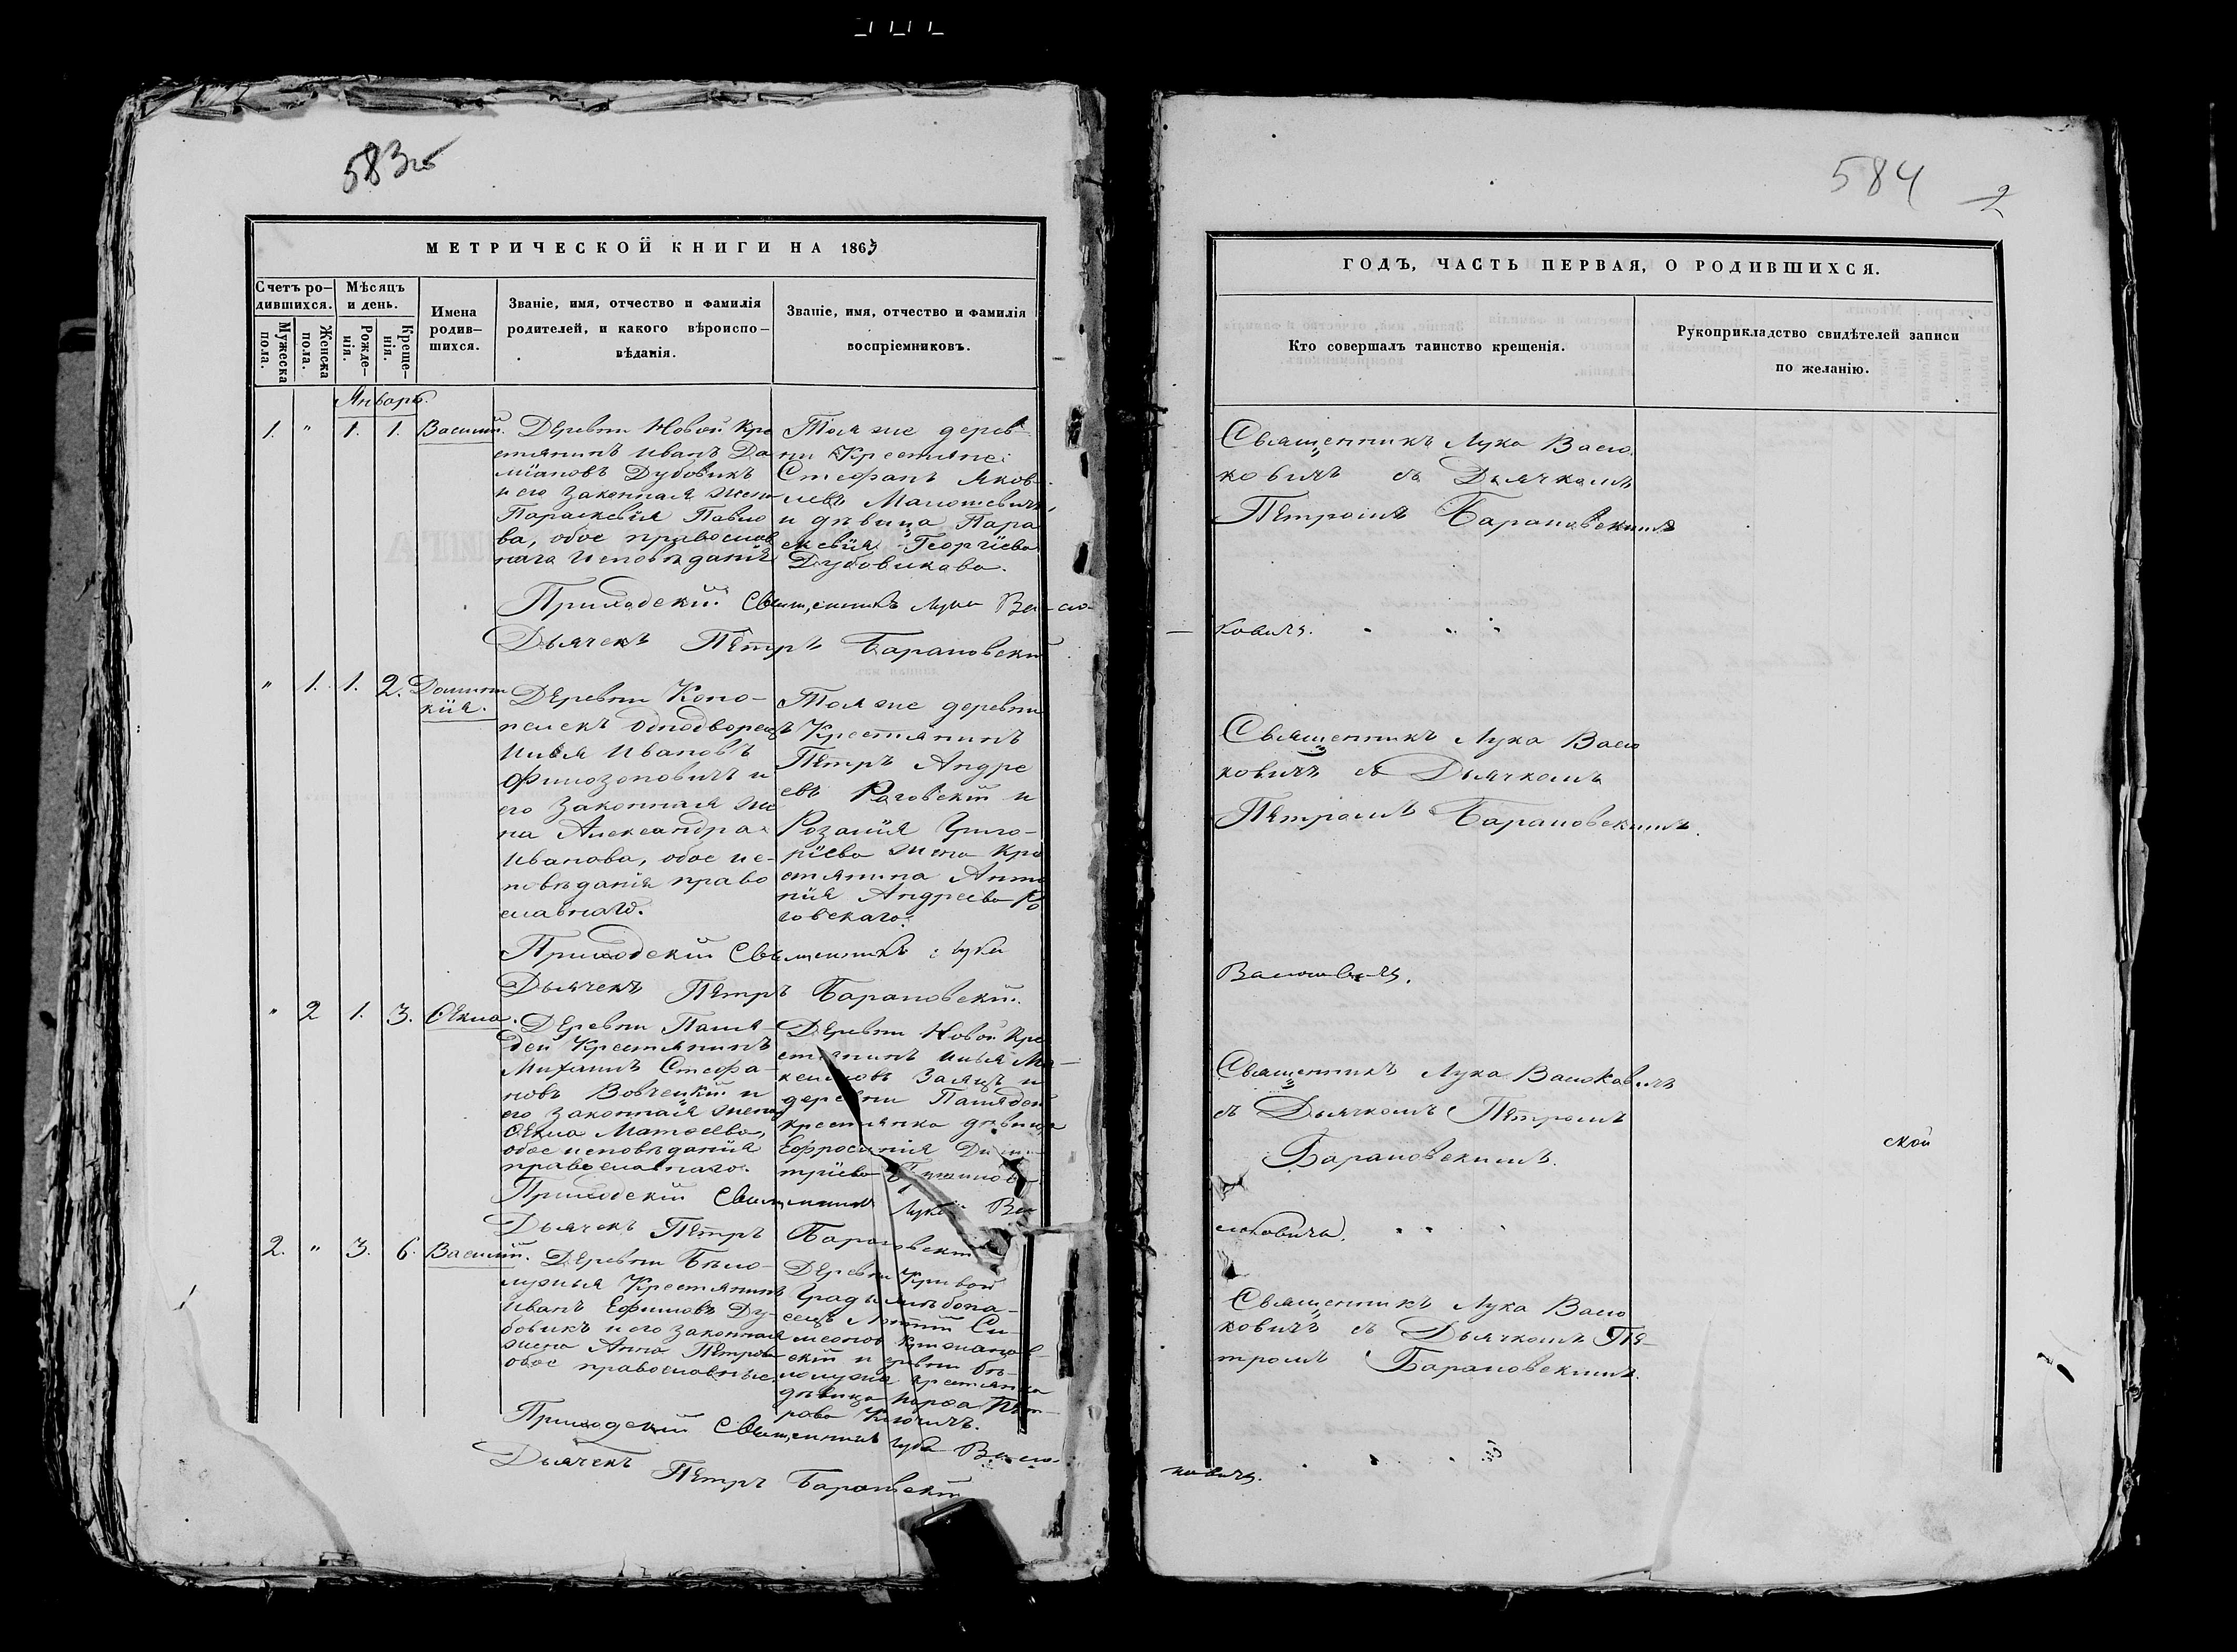 583 об
МЕТРИЧЕСКОЙ КНИГИ НА 1863
Счетъ ро-
дившихся.
Мѣсяцъ
и день.
Мужеска
пола.
Женска
пола.
Рожде-
нія.
Креще-
нія.
Имена
родив-
шихся.
Званіе, имя, отчество и фамилія
родителей, и какого вѣроиспо-
вѣданія.
Званіе, имя, отчество и фамилія
воспріемниковъ.
Январь.
1. " 1. 1. Василій.
Деревни Новой Кре
стянинъ Иванъ Да
міановъ Дубовикъ
и его законная жена
Параскевія Павло
ва, обое православ
наго исповѣданія
Тояже дерев
ни Крестяне:
Стефанъ Яков-
левъ Матюшевичъ,
и дѣвица Пара
скевія Георгіева
Дубовикова.
Приходскій Священникъ Лука Васю-
Дьячекъ Петръ Барановскій
" 1. 1. 2. Домини
кія.
Деревни Коно-
пелекъ однодворецъ
Илья Ивановъ
Филозоповичъ и
его законная же
на Александра
Иванова, обое ис-
повѣданія право
славнаго.
Тояже деревни
Крестянинъ
Петръ Андре
евъ Роговскій и
Розалія Григо-
ріева жена Кре
стянина Анто
нія Андреева Ро
говскаго.
Приходскій Священникъ Лука
Дьячекъ Петръ Барановскій.
" 2 1. 3. Ѳекла.
Деревни
Крестянинъ
Михаилъ Стефа-
новъ и
его законная жена
Ѳекла Матѳеева,
обое исповѣданія
православнаго.
Деревни Новой Кре
стянинъ Илья Ма-
ксимовъ Заяцъ и
деревни
крестянка дѣвица
Ефросинія Дими-
тріева
Приходскій Священникъ Лука Ва
Дьячекъ Петръ Барановскій
2. " 3. 6. Василій.
Деревни Бѣло-
лужья Крестянинъ
Иванъ Ефимовъ Ду-
бовикъ и его законная
жена Анна Петрова
обое православные.
Деревни Кривой
Грады хлѣбопа-
шецъ Си-
меоновъ
скій и деревни Бѣ-
лолужья крестянка
дѣвица Марѳа Пет-
рова
Приходскій Священникъ Лука Васю-
Дьячекъ Петръ Барановскій
584
2
ГОДЪ, ЧАСТЬ ПЕРВАЯ, О РОДИВШИХСЯ.
Кто совершалъ таинство крещенія.
Рукоприкладство свидѣтелей записи
по желанію.
Священникъ Лука Васю
ковичъ съ Дьячкомъ
Петромъ Барановскимъ
ковичъ.
Священникъ Лука Васю
ковичъ съ Дьячкомъ
Петромъ Барановскимъ.
Васюковичъ.
Священникъ Лука Васюковичъ
съ Дьячкомъ Петромъ
Барановскимъ.
ской
сюковичъ.
Священникъ Лука Васю
ковичъ съ Дьячкомъ Пе-
тромъ Барановскимъ.
ковичъ.